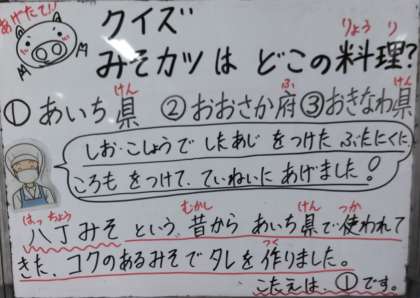 あげたて!!
クイズ
みそカツは どこの料理?
りょう り
①あいち県 ②おおさか府 ③おきなわ県
けん ふ けん
しお・こしょうで したあじ をつけた ぶたにくに
ころも をつけて、ていねいに あげました!
はっちょう むかし けん つか
八丁みそ という、昔から あいち県で使われて
きた、コクのあるみそでタレを作りました。
つく
こたえは、①です。